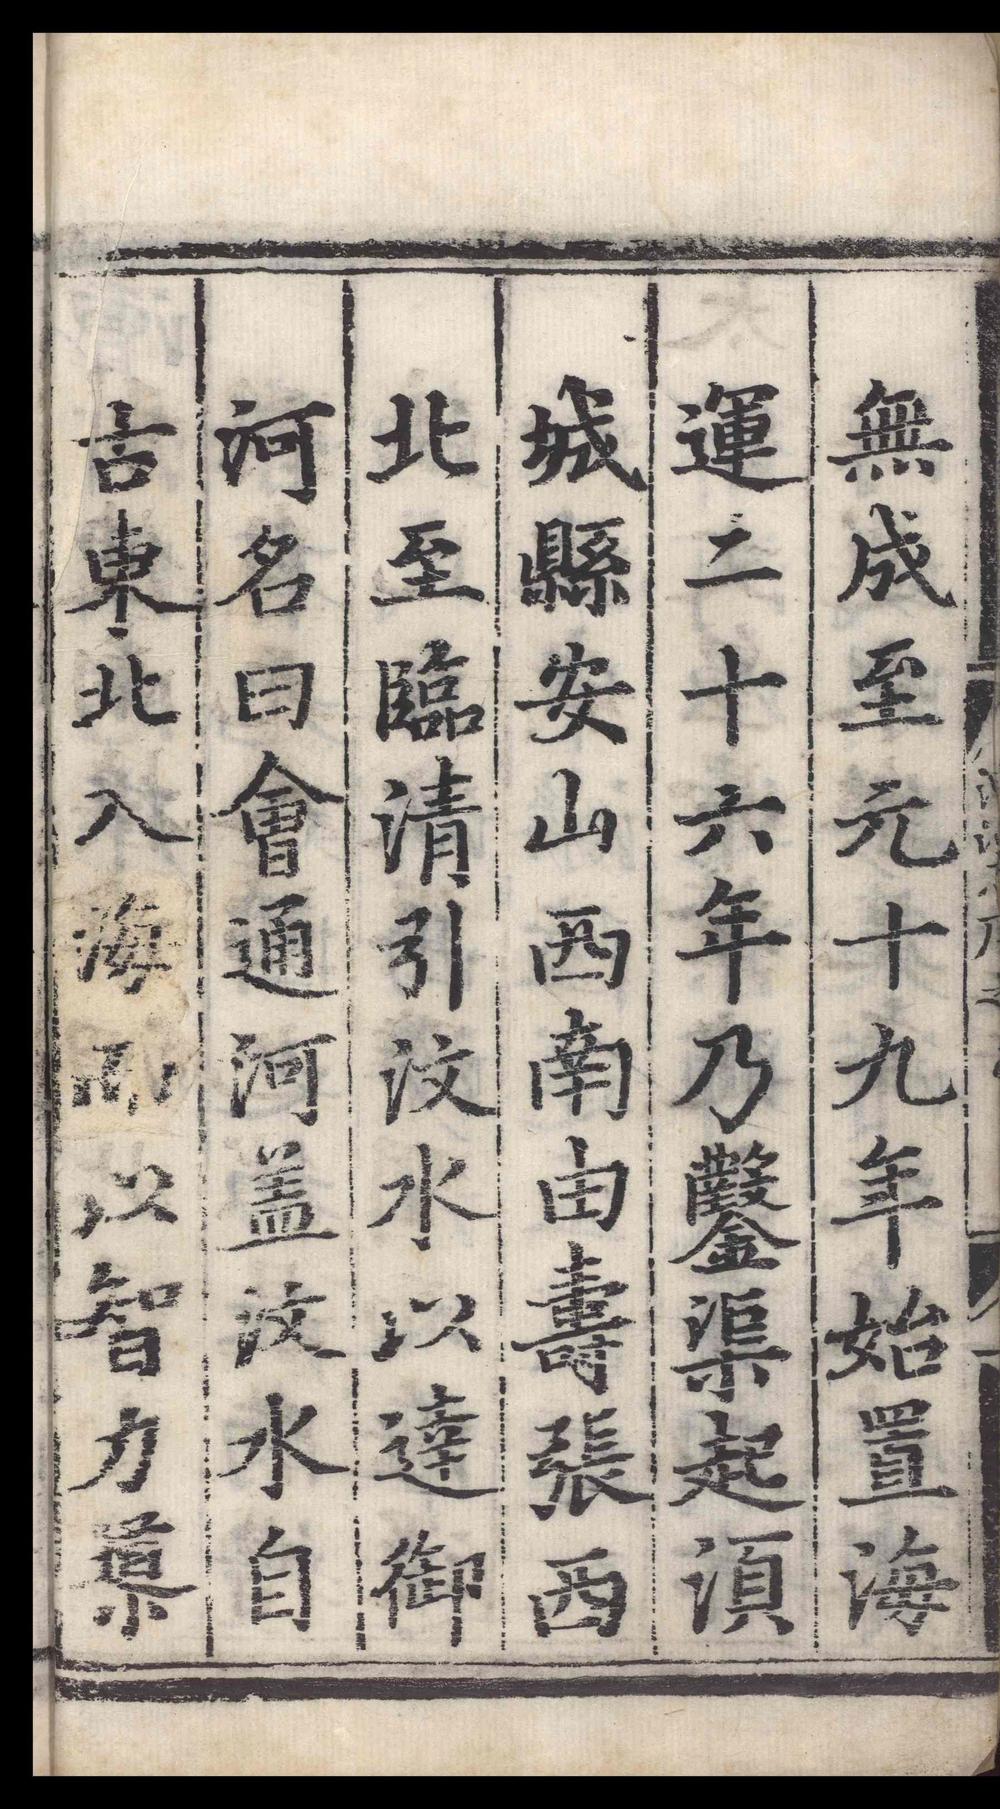 無成至元十九年始置海
運二十六年乃鑿渠起湏
城縣安山西南由壽張西
北至臨清引汶水以達御
河名曰會通河盖汶水自
古東北入海而以智力棄